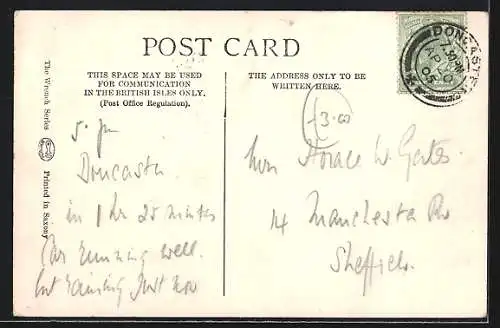 POST CARD
THIS SPACE MAY BE USED
FOR COMMUNICATION
IN THE BRITISH ISLES ONLY.
(Post Office Regulation).
THE ADDRESS ONLY TO BE
WRITTEN HERE.
The Wrench Series
Printed in Saxony
DONCASTER
AP
05
3.00
5. pm
Doncaster
in 1 hr 25 minutes
Car running well.
but raining just now
Horace W. Gates.
14 Manchester Rd
Sheffield.